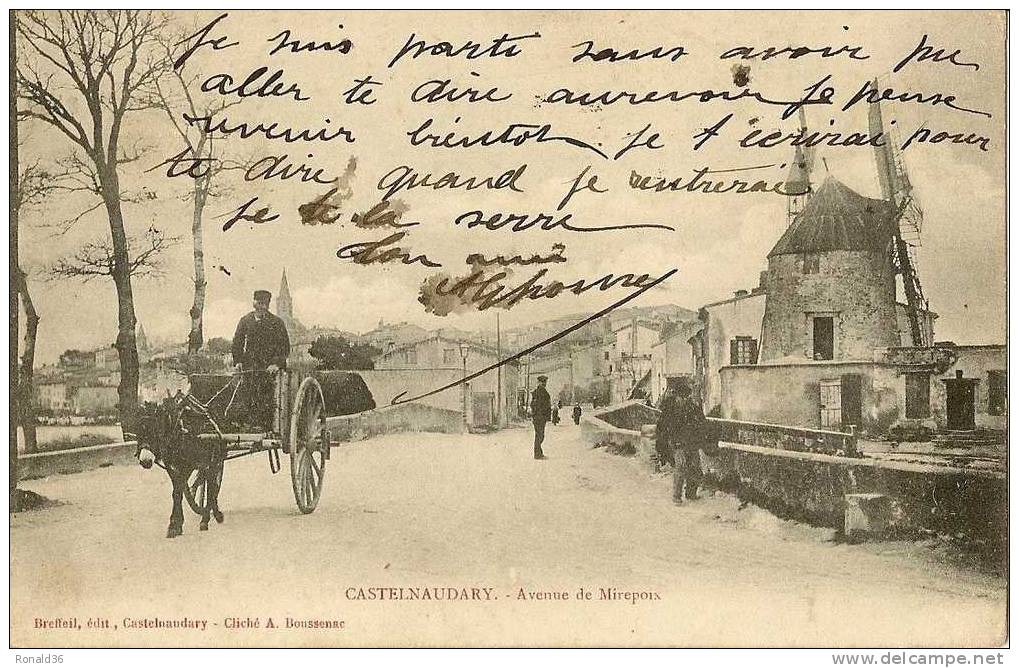 Je suis parti sans avoir pu
aller te dire aurevoir je pense
revenir bientot je t'ecrirai pour
te dire Quand je rentrerai
je te la serre
Ton ami
Alphonse
CASTELNAUDARY. - Avenue de Mirepoix
Breffeil, édit, Castelnaudary - Cliché A. Boussenac
Ronald36
www.delcampe.net